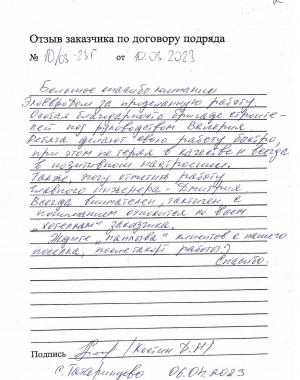 Отзыв заказчика по договору подряда
№ 10/03-23Г от 10.03.2023
Большое спасибо компании
за проделанную работу.
Особая благодарность бригаде строите-
лей под руководством Валерия
Ребята делают свою работу быстро,
при этом не теряя в качестве и всегда
в позитивном настроении.
Также, хочу отметить работу
главного инженера - Дмитрия
Всегда внимателен, тактичен, с
пониманием относится ко всем
„хотелкам" заказчика.
Ждите „наплыва" клиентов с нашего
посёлка, после такой работы:)
Спасибо.
Подпись /Костин Д.Н/
06.04.2023